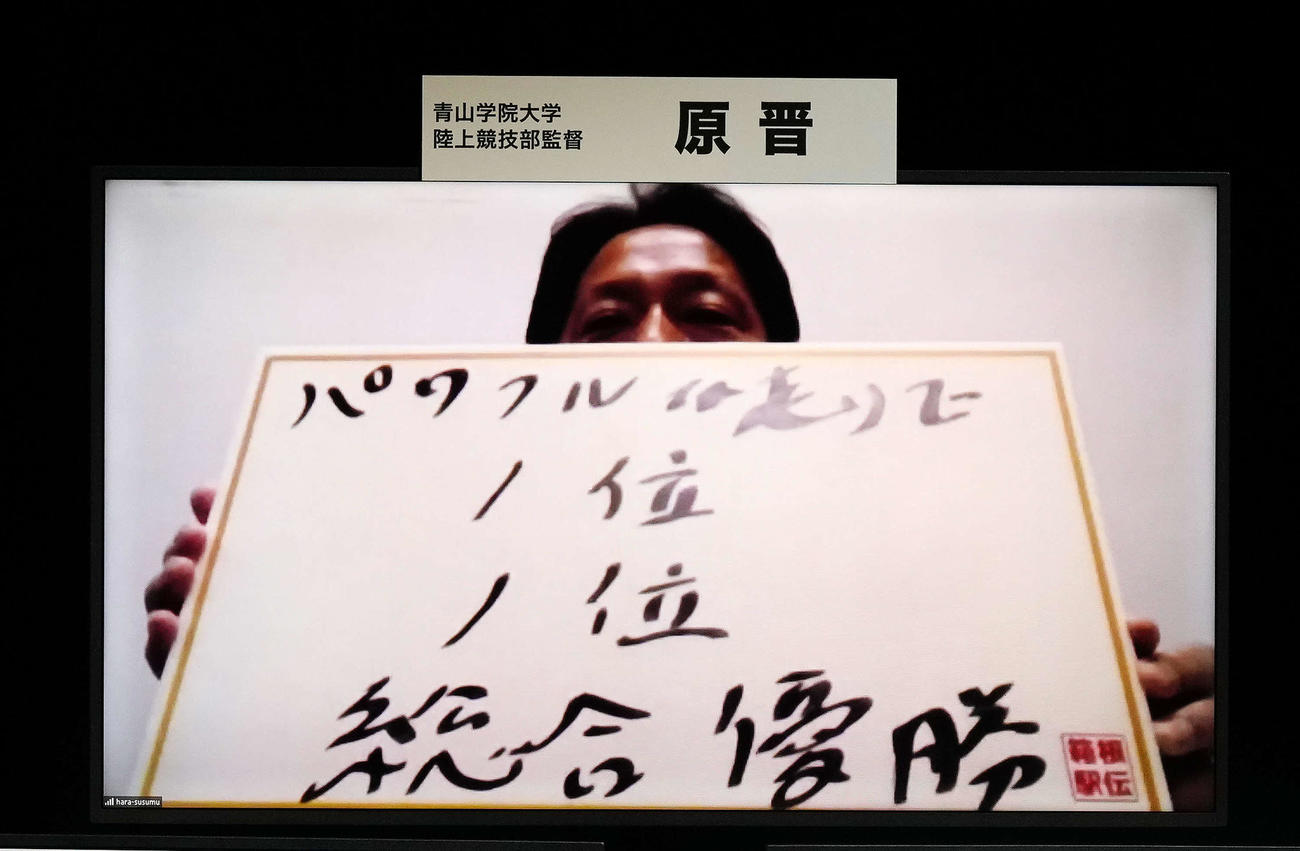 青山学院大学
陸上競技部監督
原 晋
パワフルな走りで
1位
1位
総合優勝
箱根
駅伝
hara-susumu